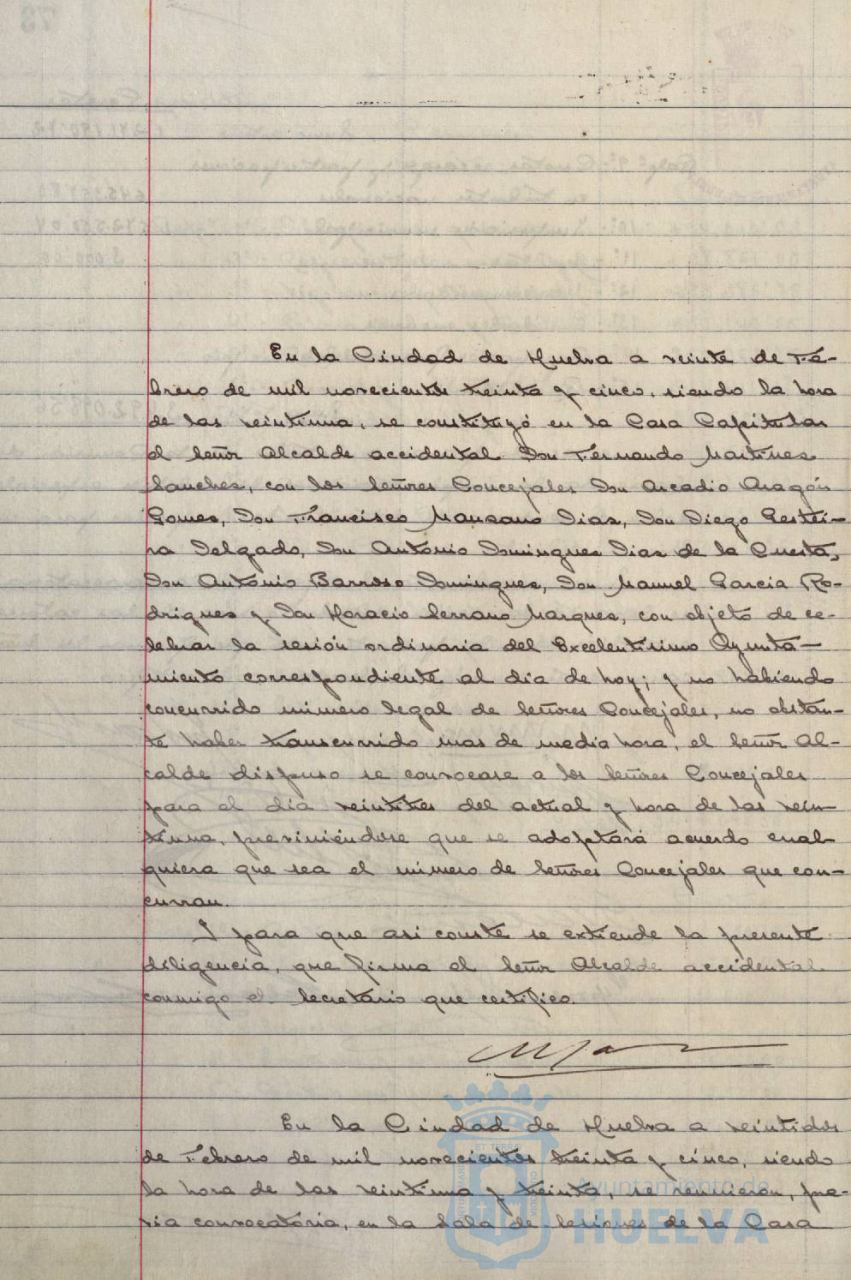 En la Ciudad de Huelva a veinte de Fe-
brero de mil novecientos treinta y cinco, siendo la hora
de las veintiuna, se constituyó en la Casa Capitular
el Señor Alcalde accidental Don Fernando Martines
Sanches, con los Señores Concejales Don Arcadio Aragón
Gomes, Don Francisco Mansano Dias, Don Diego Gestei-
ra Delgado, Don António Domingues Dias de la Cuesta,
Don António Barroso Domingues, Don Manuel Garcia Ro-
drigues y Don Horacio Serrano Marques, con objeto de ce-
lebrar la sesión ordinaria del Excelentísimo Ayunta-
miento correspondiente al dia de hoy; y no habiendo
concurrido número legal de Señores Concejales, no obstan-
te haber transcurrido mas de media hora, el Señor Al-
calde dispuso se convocase a los Señores Concejales
para el dia veintitres del actual y hora de las vein-
tiuna, previniéndose que se adoptará acuerdo cual-
quiera que sea el número de Señores Concejales que con-
curran.
Y para que asi conste se extiende la presente
diligencia, que firma el Señor Alcalde accidental
conmigo el Secretário que certifico.
En la Ciudad de Huelva a veintidos
de Febrero de mil novecientos treinta y cinco, siendo
la hora de las veintiuna y treinta, se reunieron, pre-
via convocatória, en la Sala de Sesiones de la Casa
Ayuntamiento de
HUELVA